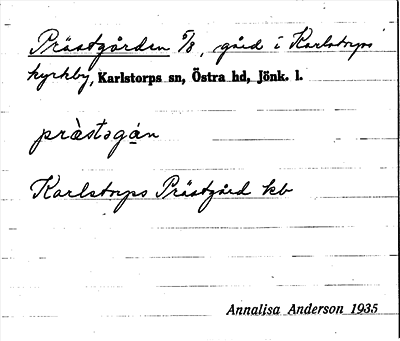 Prästgården 5/8, gård i Karlstorps
kyrkby, Karlstorps sn, Östra hd, Jönk. l.
prästəgɑ̀n
Karlstorps Prästgård kb
Annalisa Anderson 1935